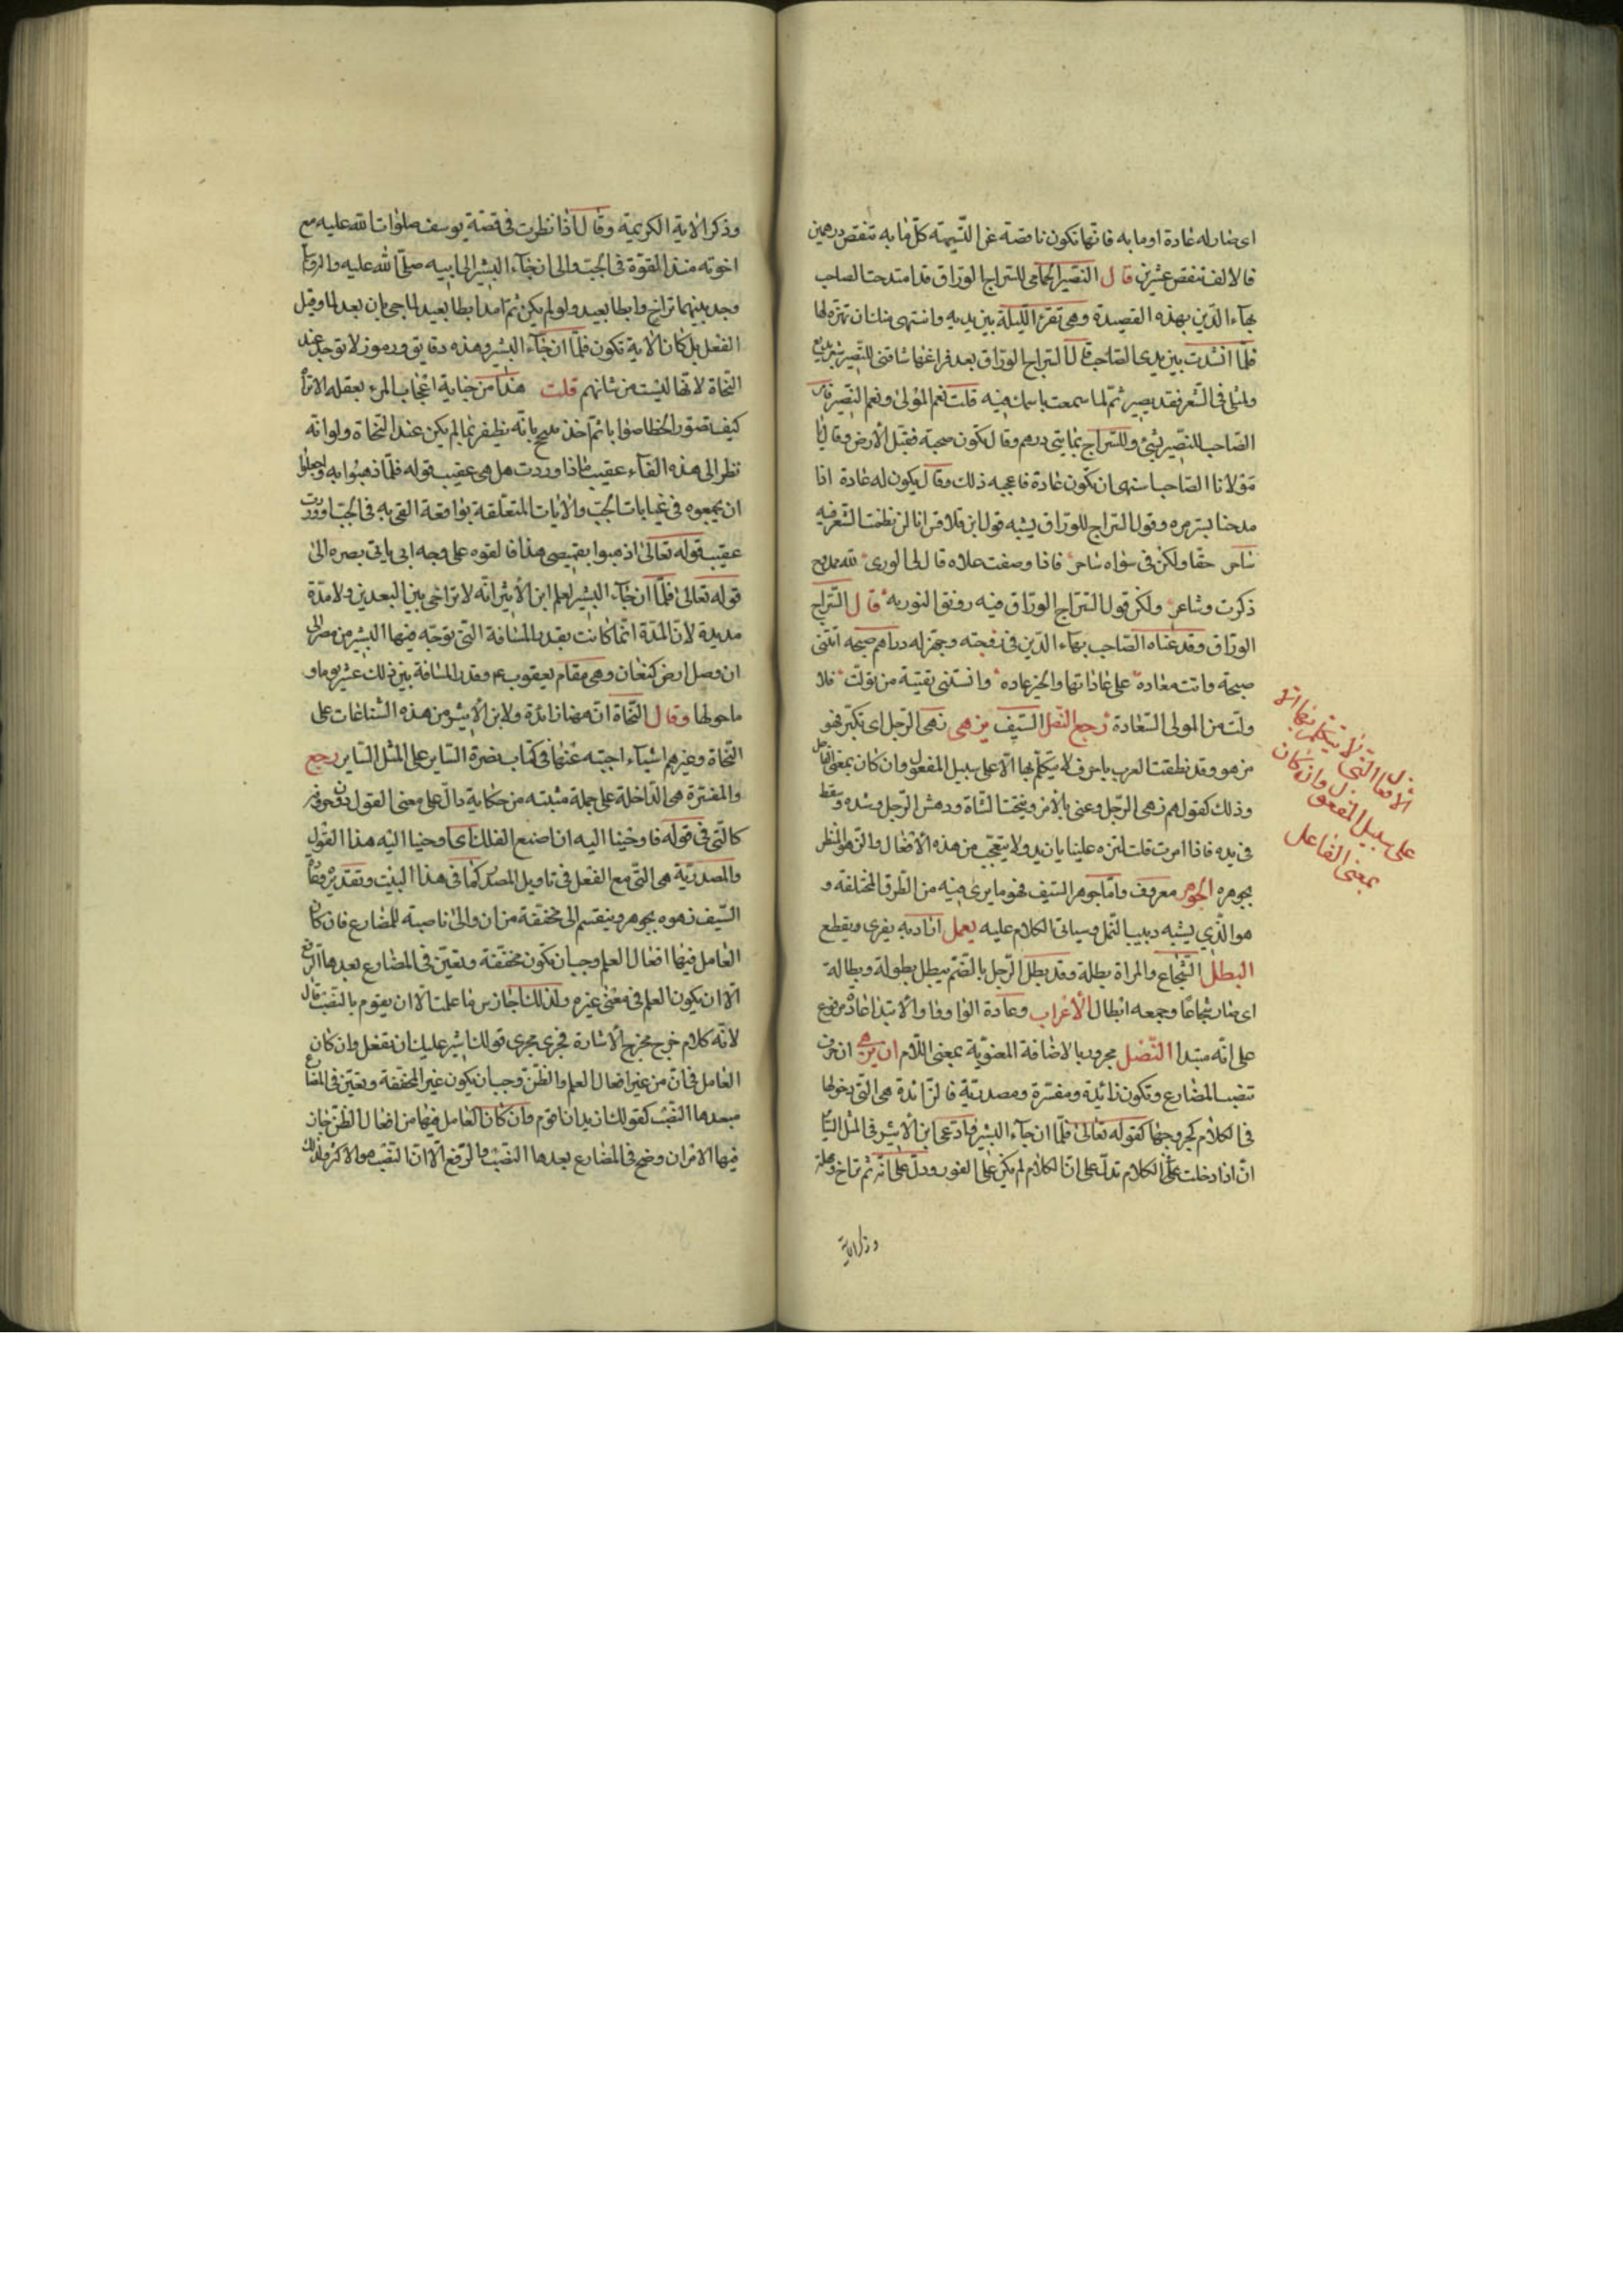 اى صار له عادة او ما به فانها تكون ناقصة عن التسمية كل مايه تنقص درهمين
فالالف تنقص عشرين قال النصير الحمامى للسراج الوراق قد امتدحت الصاحب
بهاء الدين بهذه القصيدة وهى تقرء الليلة بين يديه واشتهى منك ان تزهزه لها
فلما انشدت بين يدى الصاحب قال السراج الوراق بعد فراغها شاقنى للنصير شعر بديع
ولمثلى فى الشعر نقد بصير ثم لما سمعت باسمك فيه قلت نعم المولى ونعم النصير فامر
الصاحب للنصير بشئ وللسراج بمايتى درهم وقال تكون صحبة فقبل الارض وقال يا
مولانا الصاحب اشتهى ان تكون عادة فاعجبه ذلك وقال يكون له عادة اذا
مدحنا وقول السراج للوراق يشبه قول ابن قلاقس انا لن نظمت الشعر فيه
شاعر حقا ولكن فى سواه شاعر فاذا وصفت علاه قال لى الورى لله ممدوح
ذكرت وشاعر ولكن قول السراج الوراق فيه رونق التوريه قال السراج
الوراق وقد عناه الصاحب بهاء الدين فى وجهز له دراهم صحبه اتتنى
صحبة واتت معاده على عاداتها والخير عاده وانستنى بقية من تولت فلا
ولت من المولى السعادة رجع النصل السيف يزهى زهى الرجل اى تكبر فهو
مزهو وقد نطقت العرب باحرف لا يتكلم بها الا على سبيل المفعول وان كان بمعنى الفاعل
وذلك كقولهم زهى الرجل وعنى بالامر ونتجت الشاة ودهش الرجل وشده وسقط
فى يده فاذا امرت قلت لتزه علينا يا زيد ولا يتعجب من هذه الافعال والزهو المنظر
بجوهره الجوهر معروف واما جوهر السيف فهو ما يرى فيه من الطرق المختلفة و
هو الذى يشبه دبيب النمل وسياتى الكلام عليه يعمل اراد به يفرى ويقطع
البطل الشجاع والمراة بطلة وقد بطل الرجل بالضم يبطل بطولة وبطالة
اى صار شجاعا وجمعه ابطال الاعراب وعادة الواو واو الابتدا عادة مرفوع
على انه مبتدا النصل مجرور بالاضافة المعنوية بمعنى اللام ان يزهى ان حرف
تنصب المضارع وتكون زائدة ومفسرة ومصدرية فالزائدة هى التى دخولها
فى الكلام كخروجها كقوله تعالى فلما ان جاء البشير وادعى ابن الاثير فى المثل السائر
ان اذا دخلت على الكلام تدل على ان الكلام لم يكن على الفور ودل على انه ثم تراخ ومهلة
وذكر الاية
الافعال التى لا يتكلم بها الا
على سبيل المفعول وان كان
بمعنى الفاعل
وذكر الاية الكريمة وقال اذا نظرت فى قصة يوسف صلوات الله عليه مع
اخوته منذ القوه فى الجب والى ان جاء البشير الى ابيه صلى الله عليه والروايا
وجد بينهما تراخ وابطا بعيد ولو لم يكن ثم امد ابطا بعيد لما جئ بان بعد لما وقبل
الفعل بل كان الاية تكون فلما ان جاء البشير وهذه دقايق ورموز لا توجد عند
النحاة لانها ليست من شانهم قلت هذا من جناية اعجاب المرء بعقله الا ترا
كيف تصور الخطا صوابا ثم اخذ بانه يظفر بما لم يكن عند النحاة ولو انه
نظر الى هذه الفاء عقيب ماذا وردت هل هى عقيب قوله فلما ذهبوا به واجمعوا
ان يجعلوه فى غيابات الجب والايات المتعلقة بواقعة القى به فى الجب او وردت
عقيب قوله تعالى اذهبوا بقميصى هذا فالقوه على وجه ابى يات بصيرا الى
قوله تعالى فلما ان جاء البشير لعلم ابن الاثير انه لا تراخى بين البعدين ولا مدة
مديدة لان المدة انما كانت بقدر المسافة التى توجه فيها البشير من مصر الى
ان وصل ارض كنعان وهى مقام يعقوب ع وقدر المسافة بين ذلك عشر يوما و
ما حولها وقال النحاة انه هنا زائدة ولابن الاثير من هذه الشناعات على
النحاة وغيرهم اشياء اجبته عنها فى كتاب نصرة الثاير على المثل الساير رجع
والمفسرة هى الداخلة على جملة مثبتة من حكاية دال على معنى القول دون حروفه
كالتى فى قوله فاوحينا اليه ان اصنع الفلك اى اوحينا اليه هذا القول
والمصدرية هى التى مع الفعل فى تاويل المصدر كما فى هذا البيت وتقديره وعادة
السيف زهوه بجوهره وينقسم الى مخففة من ان والى ناصبة للمضارع فان كان
العامل فيها افعال العلم وجب ان تكون مخففة وتعين فى المضارع بعدها الرفع
الا ان يكون العلم فى معنى غيره ولذلك اجاز س ما علمت الا ان يقوم بالنصب قال
لانه كلام خرج مخرج الاشارة فجرى مجرى قولك اشير عليك ان تفعل وان كان
العامل فى ان من غير افعال العلم والظن وجب ان يكون غير المخففة وتعين فى المضارع
بعدها النصب كقولك اريد ان تقوم وان كان العامل فيها من افعال الظن جاز
فيها الامران وصح فى المضارع بعدها النصب والرفع الا ان النصب هو الاكثر ولذلك